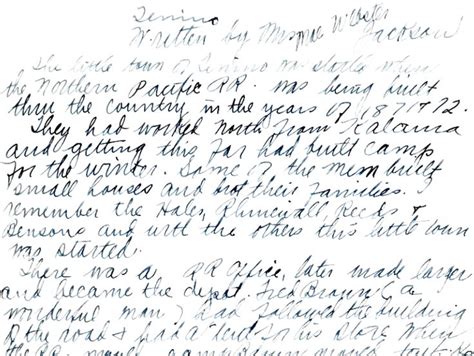 Tenino
Written by Mrs Webster
Jackson
The little town of Tenino was started when
the Northern Pacific RR. was being built
thru the country in the years of 1871 + 72.
They had worked North from Kalama
and getting this far had built camp
for the winter. Some of the men built
small houses and brot their families. I
remember the Hales, Reeds +
Bensons and with the others this little town
was started.
There was a RR Office, later made larger
and became the depot. Fred Brown (a
wonderful man) had followed the building
of the road + had a tent for his store when
the RR